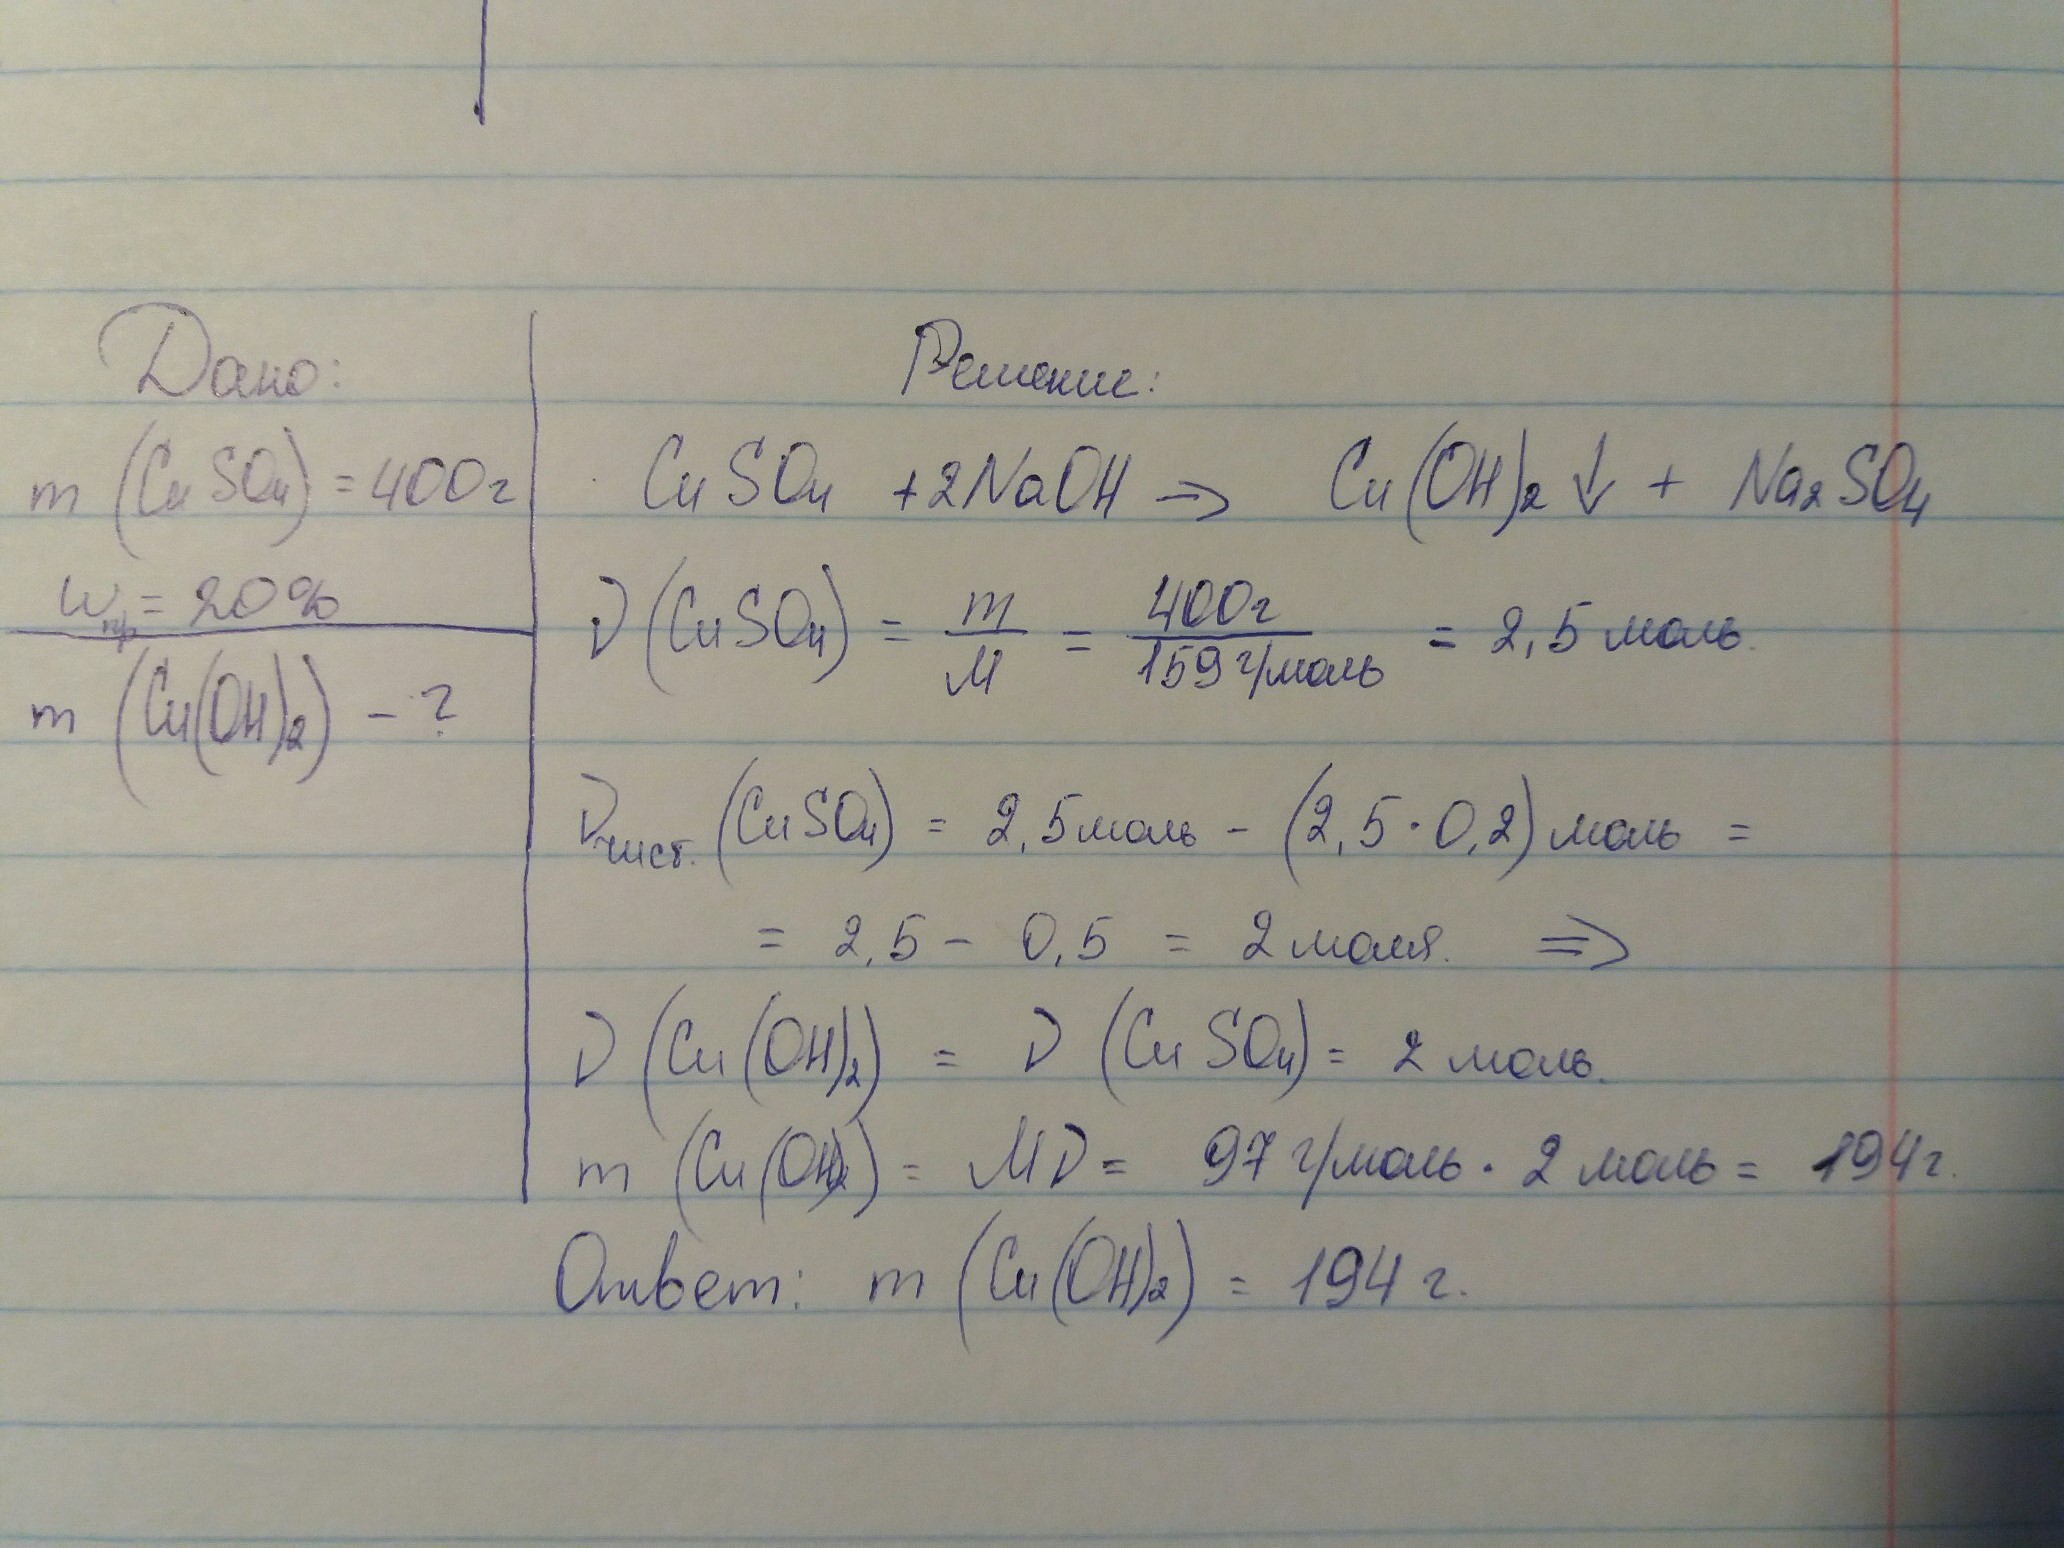 Дано:
m (CuSO₄) = 400г
wпр = 20%
m (Cu(OH)₂) - ?
Решение:
CuSO₄ + 2NaOH → Cu(OH)₂ ↓ + Na₂SO₄
ν (CuSO₄) = m/M = 400г/159 г/моль = 2,5 моль.
νчист. (CuSO₄) = 2,5 моль - (2,5 · 0,2) моль =
= 2,5 - 0,5 = 2 моля. ⇒
ν (Cu(OH)₂) = ν (CuSO₄) = 2 моль.
m (Cu(OH)₂) = Mν = 97 г/моль · 2 моль = 194г.
Ответ: m (Cu(OH)₂) = 194 г.